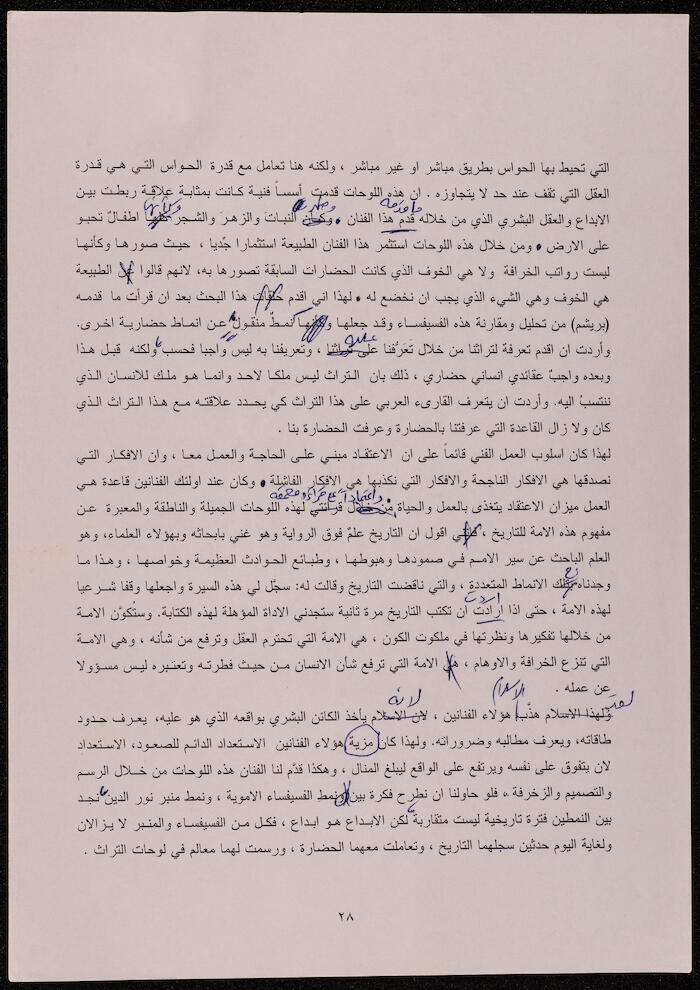 التي تحيط بها الحواس بطريق مباشر او غير مباشر ، ولكنه هنا تعامل مع قدرة الحواس التي هي قدرة
العقل التي تقف عند حد لا يتجاوزه . ان هذه اللوحات قدمت أسساً فنية كانت بمثابة علاقة ربطت بين
ما قدمه
وكأنها
الابداع والعقل البشري الذي من خلاله قدم هذا الفنان . وكأن النبات والزهر والشجر كلها اطفالٌ تحبو
على الارض . ومن خلال هذه اللوحات استثمر هذا الفنان الطبيعة استثمارا جدّيا ، حيث صورها وكأنها
ليست رواتب الخرافة ولا هي الخوف الذي كانت الحضارات السابقة تصورها به، لانهم قالوا عن الطبيعة
هي الخوف وهي الشيء الذي يجب ان نخضع له . لهذا اني اقدم حلقات هذا البحث بعد ان قرأت ما قدمه
(بريشم) من تحليل ومقارنة هذه الفسيفساء وقد جعلها وكأنها نمطٌ منقول عن انماط حضارية اخرى.
عليه
وأردت ان اقدم تعرفة لتراثنا من خلال تَعَرُّفنا على تراثنا ، وتعريفنا به ليس واجبا فحسب ولكنه قبل هذا
وبعده واجبٌ عقائدي انساني حضاري ، ذلك بان التراث ليس ملكا لاحد وانما هو ملك للانسان الذي
ننتسبُ اليه. وأردت ان يتعرف القارىء العربي على هذا التراث كي يحدد علاقته مع هذا التراث الذي
كان ولا زال القاعدة التي عرفتنا بالحضارة وعرفت الحضارة بنا .
لهذا كان اسلوب العمل الفني قائماً على ان الاعتقاد مبني على الحاجة والعمل معا ، وان الافكار التي
نصدقها هي الافكار الناجحة والافكار التي نكذبها هي الافكار الفاشلة . وكان عند اولئك الفنانين قاعدة هي
واعتمادا على قراءة
العمل ميزان الاعتقاد يتغذى بالعمل والحياة من خلال قرائتي لهذه اللوحات الجميلة والناطقة والمعبرة عن
مفهوم هذه الامة للتاريخ ، فإنني اقول ان التاريخ علمٌ فوق الرواية وهو غني بابحاثه وبهؤلاء العلماء، وهو
العلم الباحث عن سير الامم في صمودها وهبوطها ، وطبائع الحوادث العظيمة وخواصها ، وهذا ما
وجدناه تلك الانماط المتعددة ، والتي ناقضت التاريخ وقالت له: سجّل لي هذه السيرة واجعلها وقفا شرعيا
اردت
لهذه الامة ، حتى اذا ارادت ان تكتب التاريخ مرة ثانية ستجدني الاداة المؤهلة لهذه الكتابة. وستكوّن الامة
من خلالها تفكيرها ونظرتها في ملكوت الكون ، هي الامة التي تحترم العقل وترفع من شأنه ، وهي الامة
التي تنزع الخرافة والاوهام ، هي الامة التي ترفع شأن الانسان من حيث فطرته وتعتبره ليس مسؤولا
عن عمله .
لقد
الاسلام
لانه
ولهذا الاسلام هذّب هؤلاء الفنانين ، لان الاسلام يأخذ الكائن البشري بواقعه الذي هو عليه، يعرف حدود
طاقاته، ويعرف مطالبه وضروراته. ولهذا كان مزية هؤلاء الفنانين الاستعداد الدائم للصعود، الاستعداد
لان يتفوق على نفسه ويرتفع على الواقع ليبلغ المنال ، وهكذا قدّم لنا الفنان هذه اللوحات من خلال الرسم
والتصميم والزخرفة ، فلو حاولنا ان نطرح فكرة بين نمط الفسيفساء الاموية ، ونمط منبر نور الدين نجد
بين النمطين فترة تاريخية ليست متقاربة لكن الابداع هو ابداع ، فكل من الفسيفساء والمنبر لا يزالان
ولغاية اليوم حدثين سجلهما التاريخ ، وتعاملت معهما الحضارة ، ورسمت لهما معالم في لوحات التراث .
٢٨